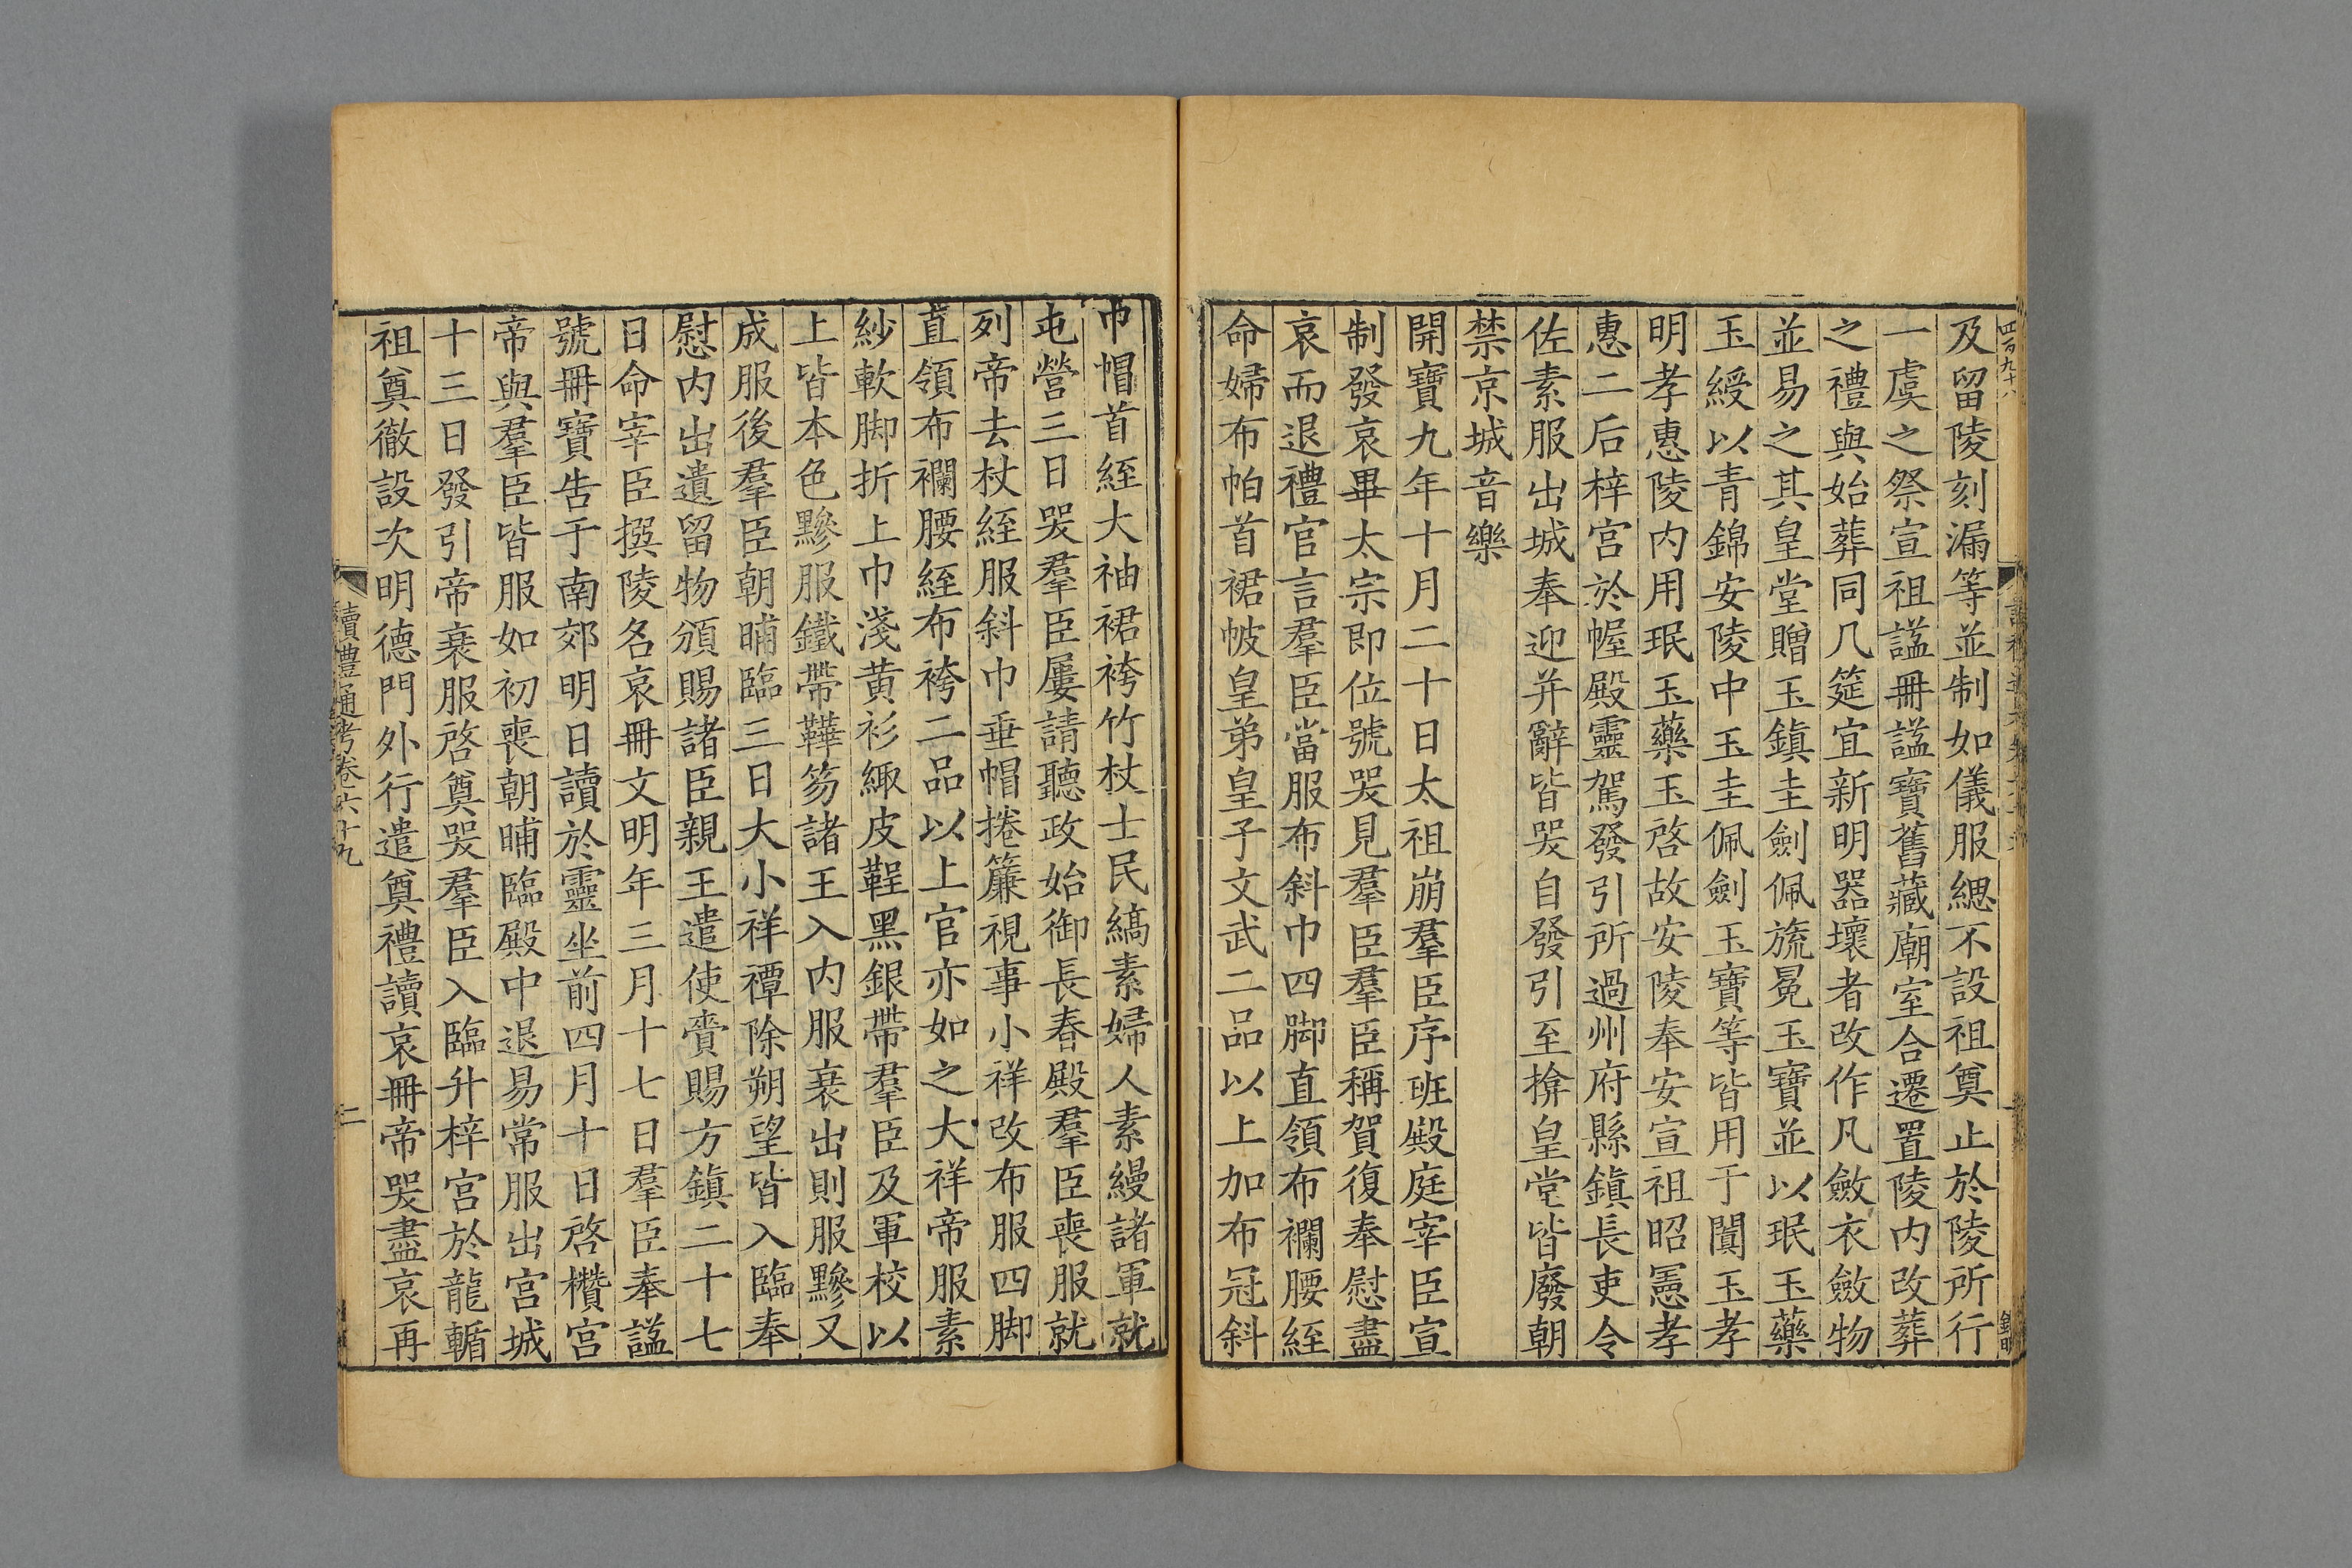 及留陵刻漏等並制如儀服緦不設祖奠止於陵所行
一虞之祭宣祖諡冊諡寶舊藏廟室合遷置陵内改葬
之禮與始葬同几筵宜新明器壞者改作凡斂衣斂物
並易之其皇堂贈玉鎮圭劍佩旒冕玉寶並以珉玉藥
玉綬以青錦安陵中玉圭佩劍玉寶等皆用于闐玉孝
明孝惠陵内用珉玉藥玉啓故安陵奉安宣祖昭憲孝
惠二后梓宮於幄殿靈駕發引所過州府縣鎮長吏令
佐素服出城奉迎并辭皆哭自發引至揜皇堂皆廢朝
禁京城音樂
開寶九年十月二十日太祖崩羣臣序班殿庭宰臣宣
制發哀畢太宗即位號哭見羣臣羣臣稱賀復奉慰盡
哀而退禮官言羣臣當服布斜巾四脚直領布襴腰絰
命婦布帕首裙帔皇弟皇子文武二品以上加布冠斜
巾帽首絰大袖裙袴竹杖士民縞素婦人素縵諸軍就
屯營三日哭羣臣屢請聽政始御長春殿羣臣喪服就
列帝去杖絰服斜巾垂帽捲簾視事小祥改布服四脚
直領布襴腰絰布袴二品以上官亦如之大祥帝服素
紗軟脚折上巾淺黄衫緅皮鞓黑銀帶羣臣及軍校以
上皆本色黲服鐵帶鞾笏諸王入内服衰出則服黲又
成服後羣臣朝晡臨三日大小祥禫除朔望皆入臨奉
慰内出遺留物頒賜諸臣親王遣使賫賜方鎮二十七
日命宰臣撰陵名哀冊文明年三月十七日羣臣奉諡
號冊寶告于南郊明日讀於靈坐前四月十日啓欑宮
帝與羣臣皆服如初喪朝晡臨殿中退易常服出宮城
十三日發引帝衰服啓奠哭羣臣入臨升梓宮於龍輴
祖奠徹設次明德門外行遣奠禮讀哀冊帝哭盡哀再
讀禮通考卷六十九
二